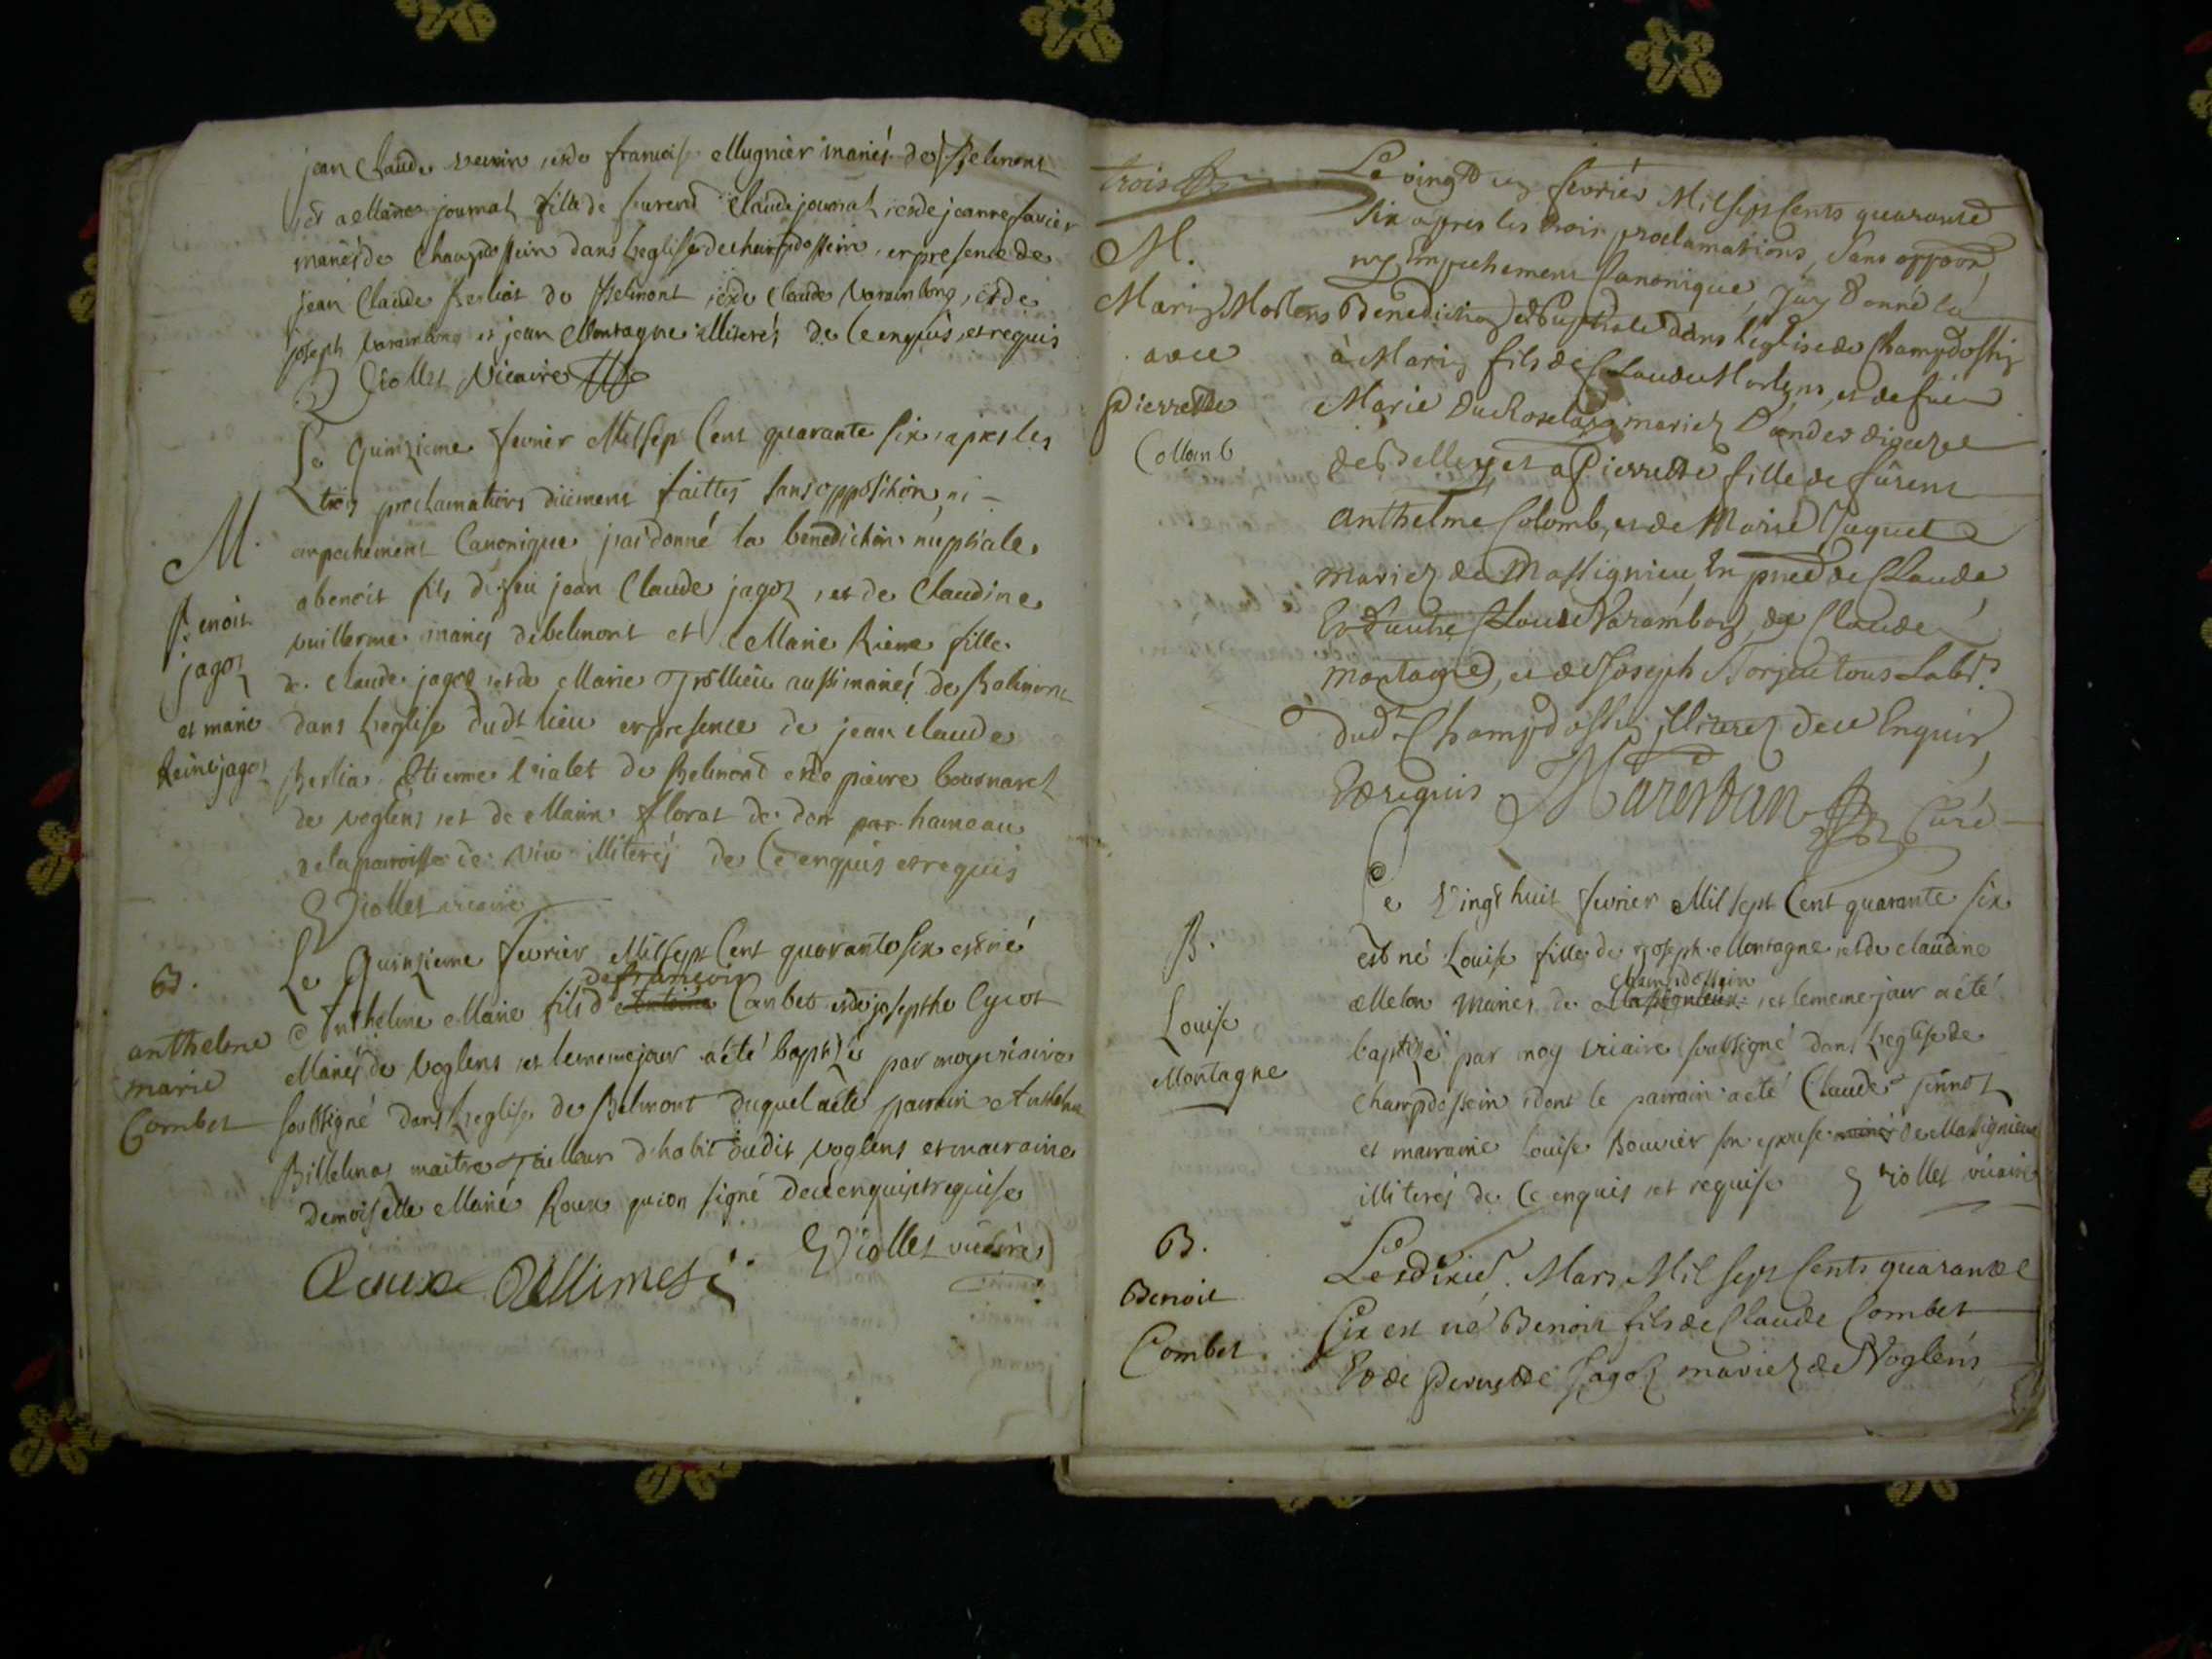 jean Claude et de francoise Mugnier mariés de Belmont
et a Marie journal fille de feurend Claude journal et de jeanne favier
mariés de Champdossin dans l'eglise de champdossein en presence de
jean Claude Berliat de Belmont et de Claude Varambong, et de
joseph varambong et jean Montagne illiterés de ce enquis et requis
Violler vicaire
Le Quinzieme fevrier Mil sept Cent quarante six apres les
trois proclamations düement faittes sans opposition, ni
empechement Canonique jai donné la benediction nuptiale
M.
a benoit fils de feu jean Claude jagoz et de Claudine
Benoit
jagoz
et marie
Reine jagoz
vuillerme mariés de belmont et Marie Riene fille
de Claude jagoz et de Marie Trollieu aussi mariés de Belmont
dans l'eglise dudt lieu en presence de jean claude
Berlia Etienne Vialet de Belmont et de pierre
de voglens et de Marin florat de don par hameau
de la parroisse de Viu illiterés de ce enquis et requis
Violler vicaire
Le Quinzieme fevrier Mil sept Cent quarante six est né
B.
anthelme
marie
Combet
de francois
Anthelme Marie fils d'Antoine Combet et de josephte Cycot
Mariés de Voglens et le meme jour a été baptizé par moy vicaire
soussigné dans l'eglise de Belmont duquel a été parrain Anthelme
Billelmas maitre Tailleur d'habit dudit voglens et mairaine
demoiselle Marie Roux qui on signé de ce enquis et requise
Violler vicaire
Roux
trois
Le vingt un fevrier Mil sept Cents quarante
six apres les trois proclamations, sans oppoon,
ny Empechement Canonique, J'ay Donné la
M.
Marin Mortens
avec
Pierrette
Collomb
Benediction Nuptiale dans l'eglise de Champdossin
à Marin fils de Claude Mortens, et de fuë
Marie mariez dioceze
de Belley, et a Pierrette fille de fûrent
Anthelme Colomb, et de Marie Jaquet
mariez de Massignieu, En pnce de Claude
Et d'autre Claude Varambon, de Claude
montagne, et de Joseph tous Labrs
dudt Champdossin illiterez de ce Enquis,
Et requis. Marestan Curé
Le Vingt huit fevrier Mil sept Cent quarante six
B.
Louise
Montagne
est né Louise fille de joseph Montagne et de claudine
champdossein
Melon Mariés de Massignieux et le meme jour a été
baptizé par moy vicaire soussigné dans l'eglise de
champdossein dont le parrain a eté Claude
et mairaine Louise Bouvier son epouse mariés de Massignieux
illiterés de ce enquis et requise Violler vicaire
B.
Benoit
Combet
Le dixie. Mars Mil sept Cents quarante
Six est né Benoit fils de Claude Combet
Et de Pernette Jagoz mariez de Voglens